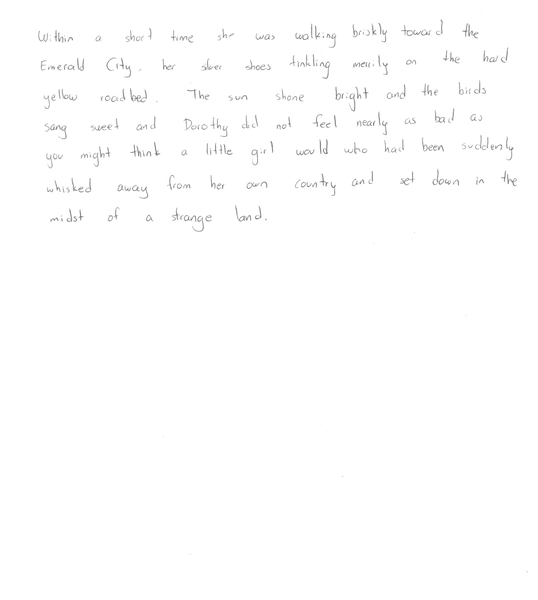 Within a short time she was walking briskly toward the
Emerald City, her silver shoes tinkling merrily on the hard
yellow roadbed. The sun shone bright and the birds
sang sweet and Dorothy did not feel nearly as bad as
you might think a little girl would who had been suddenly
whisked away from her own country and set down in the
midst of a strange land.